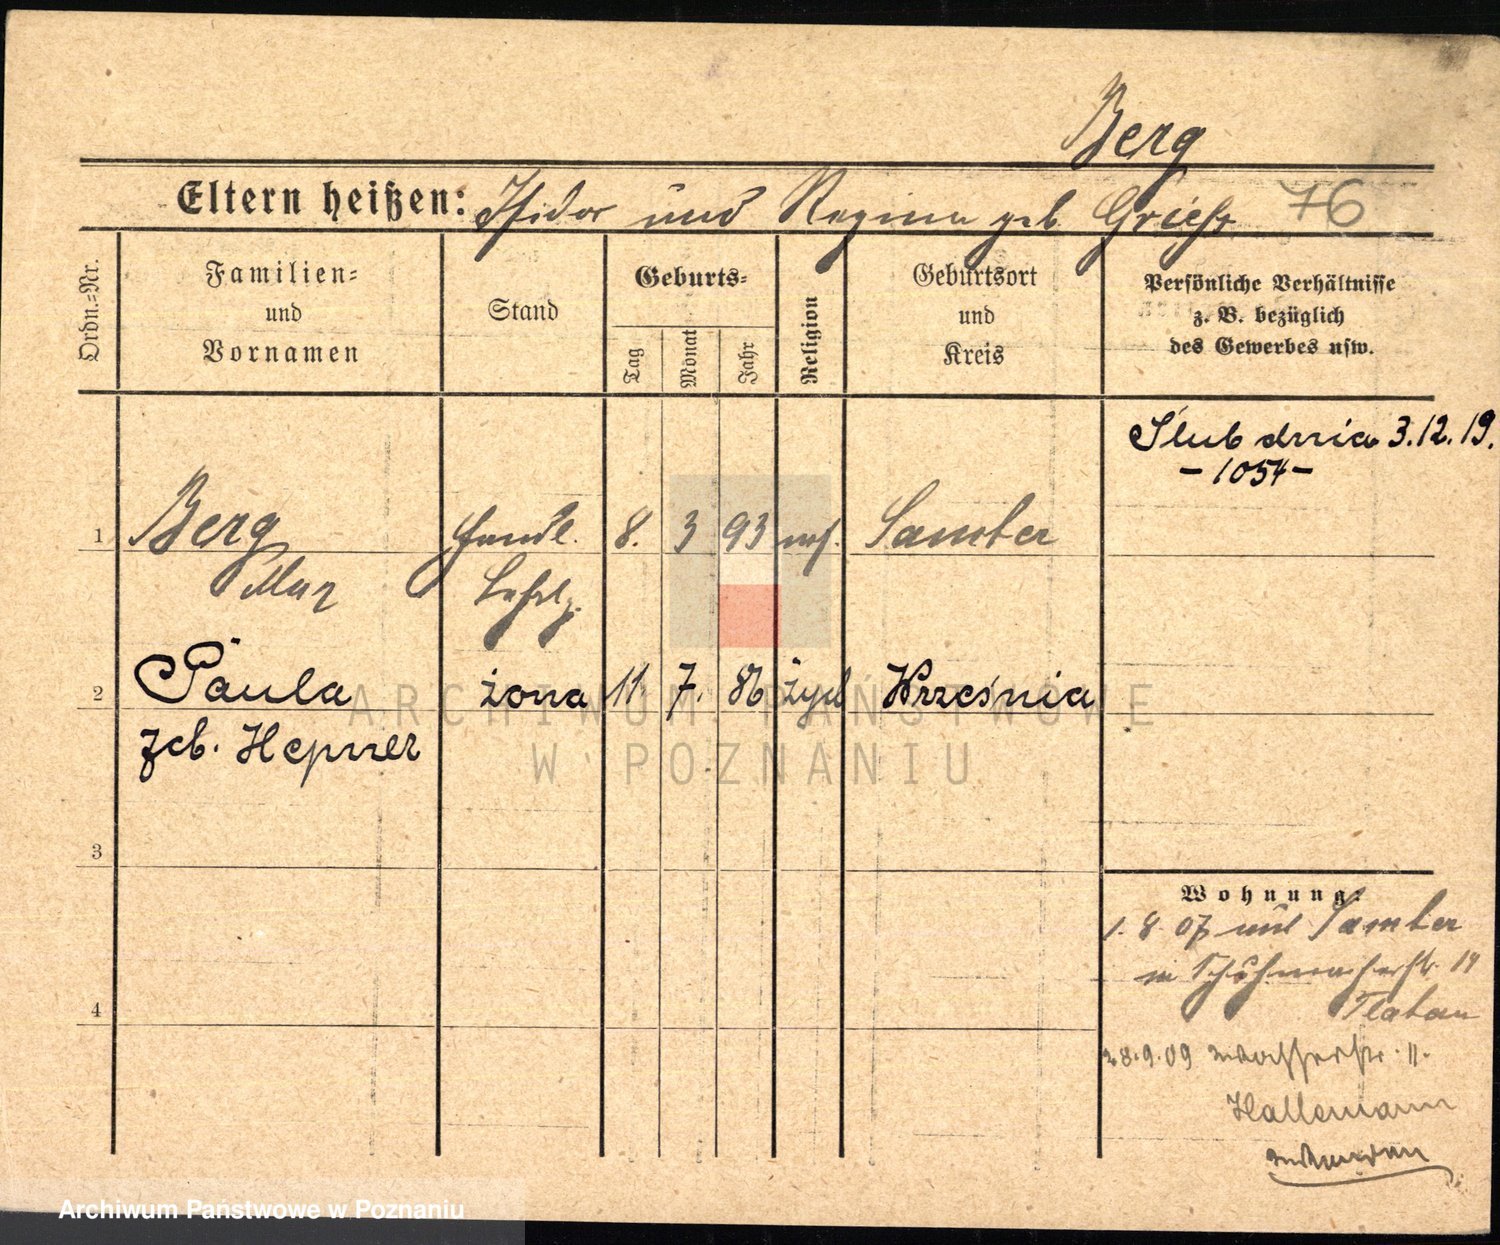 Berg
Eltern heißen: Isidor und Regina geb. 76
Ordn.=Nr.
Familien=
und
Vornamen
Stand
Geburts=
Tag
Monat
Jahr
Religion
Geburtsort
und
Kreis
Persönliche Verhältnisse
z. B. bezüglich
des Gewerbes usw.
Ślub dnia 3.12.19.
-1054-
1 Berg Handl. 8. 3 93 mos. Samter
Max Lehrlg.
2 Paula żona 11. 7. 86 żyd Września
geb. Hepner
3
4
Wohnung:
1. 8 07 Samter
in Schuhmacherstr. 14
28.9.09 Wasserstr. 11.
Hallemann
ARCHIWUM PAŃSTWOWE
W POZNANIU
Archiwum Państwowe w Poznaniu